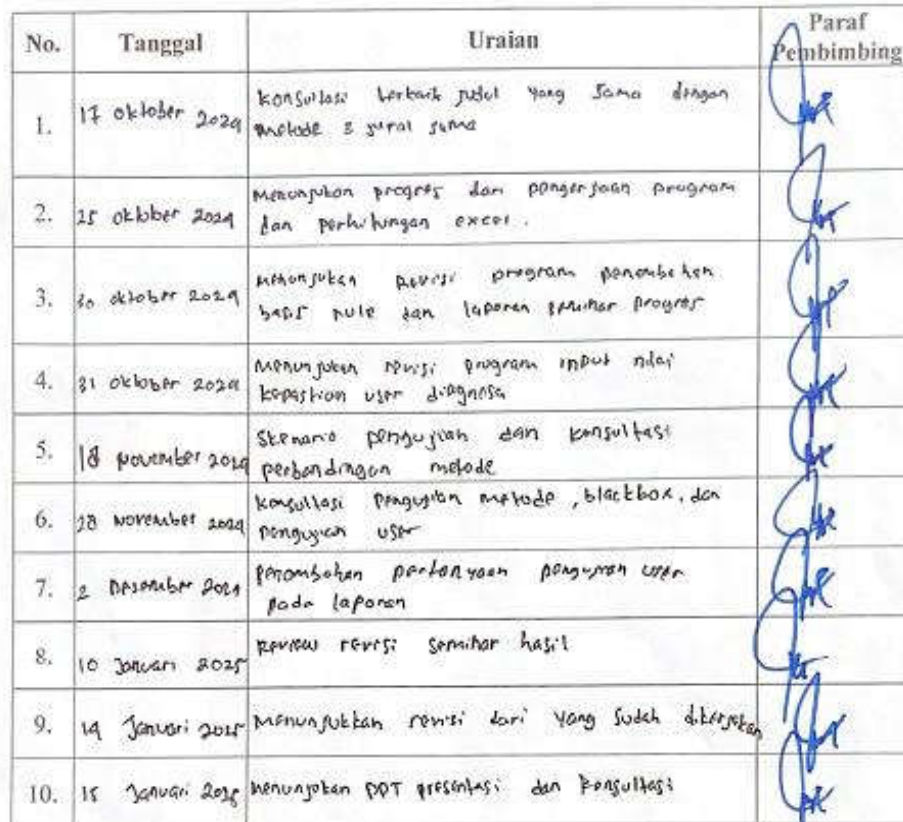 No. Tanggal Uraian Paraf
Pembimbing
1. 17 oktober 2024 Konsultasi terkait judul yang sama dengan
metode 3 jurnal sama
2. 25 oktober 2024 Menunjukan progres dari pengerjaan program
dan perhitungan excel.
3. 30 oktober 2024 Menunjukan Revisi program penambahan
basis rule dan laporan seminar progres
4. 31 oktober 2024 Menunjukan revisi program input nilai
kepastian user diagnosa
5. 18 november 2024 Skenario pengujian dan konsultasi
perbandingan metode
6. 28 november 2024 Konsultasi pengujian metode, blackbox, dan
pengujian user
7. 2 Desember 2024 penambahan pertanyaan pengujian user
pada laporan
8. 10 Januari 2025 Review revisi seminar hasil
9. 14 Januari 2025 Menunjukkan revisi dari yang sudah dikerjakan
10. 15 Januari 2025 Menunjukan PPT presentasi dan konsultasi